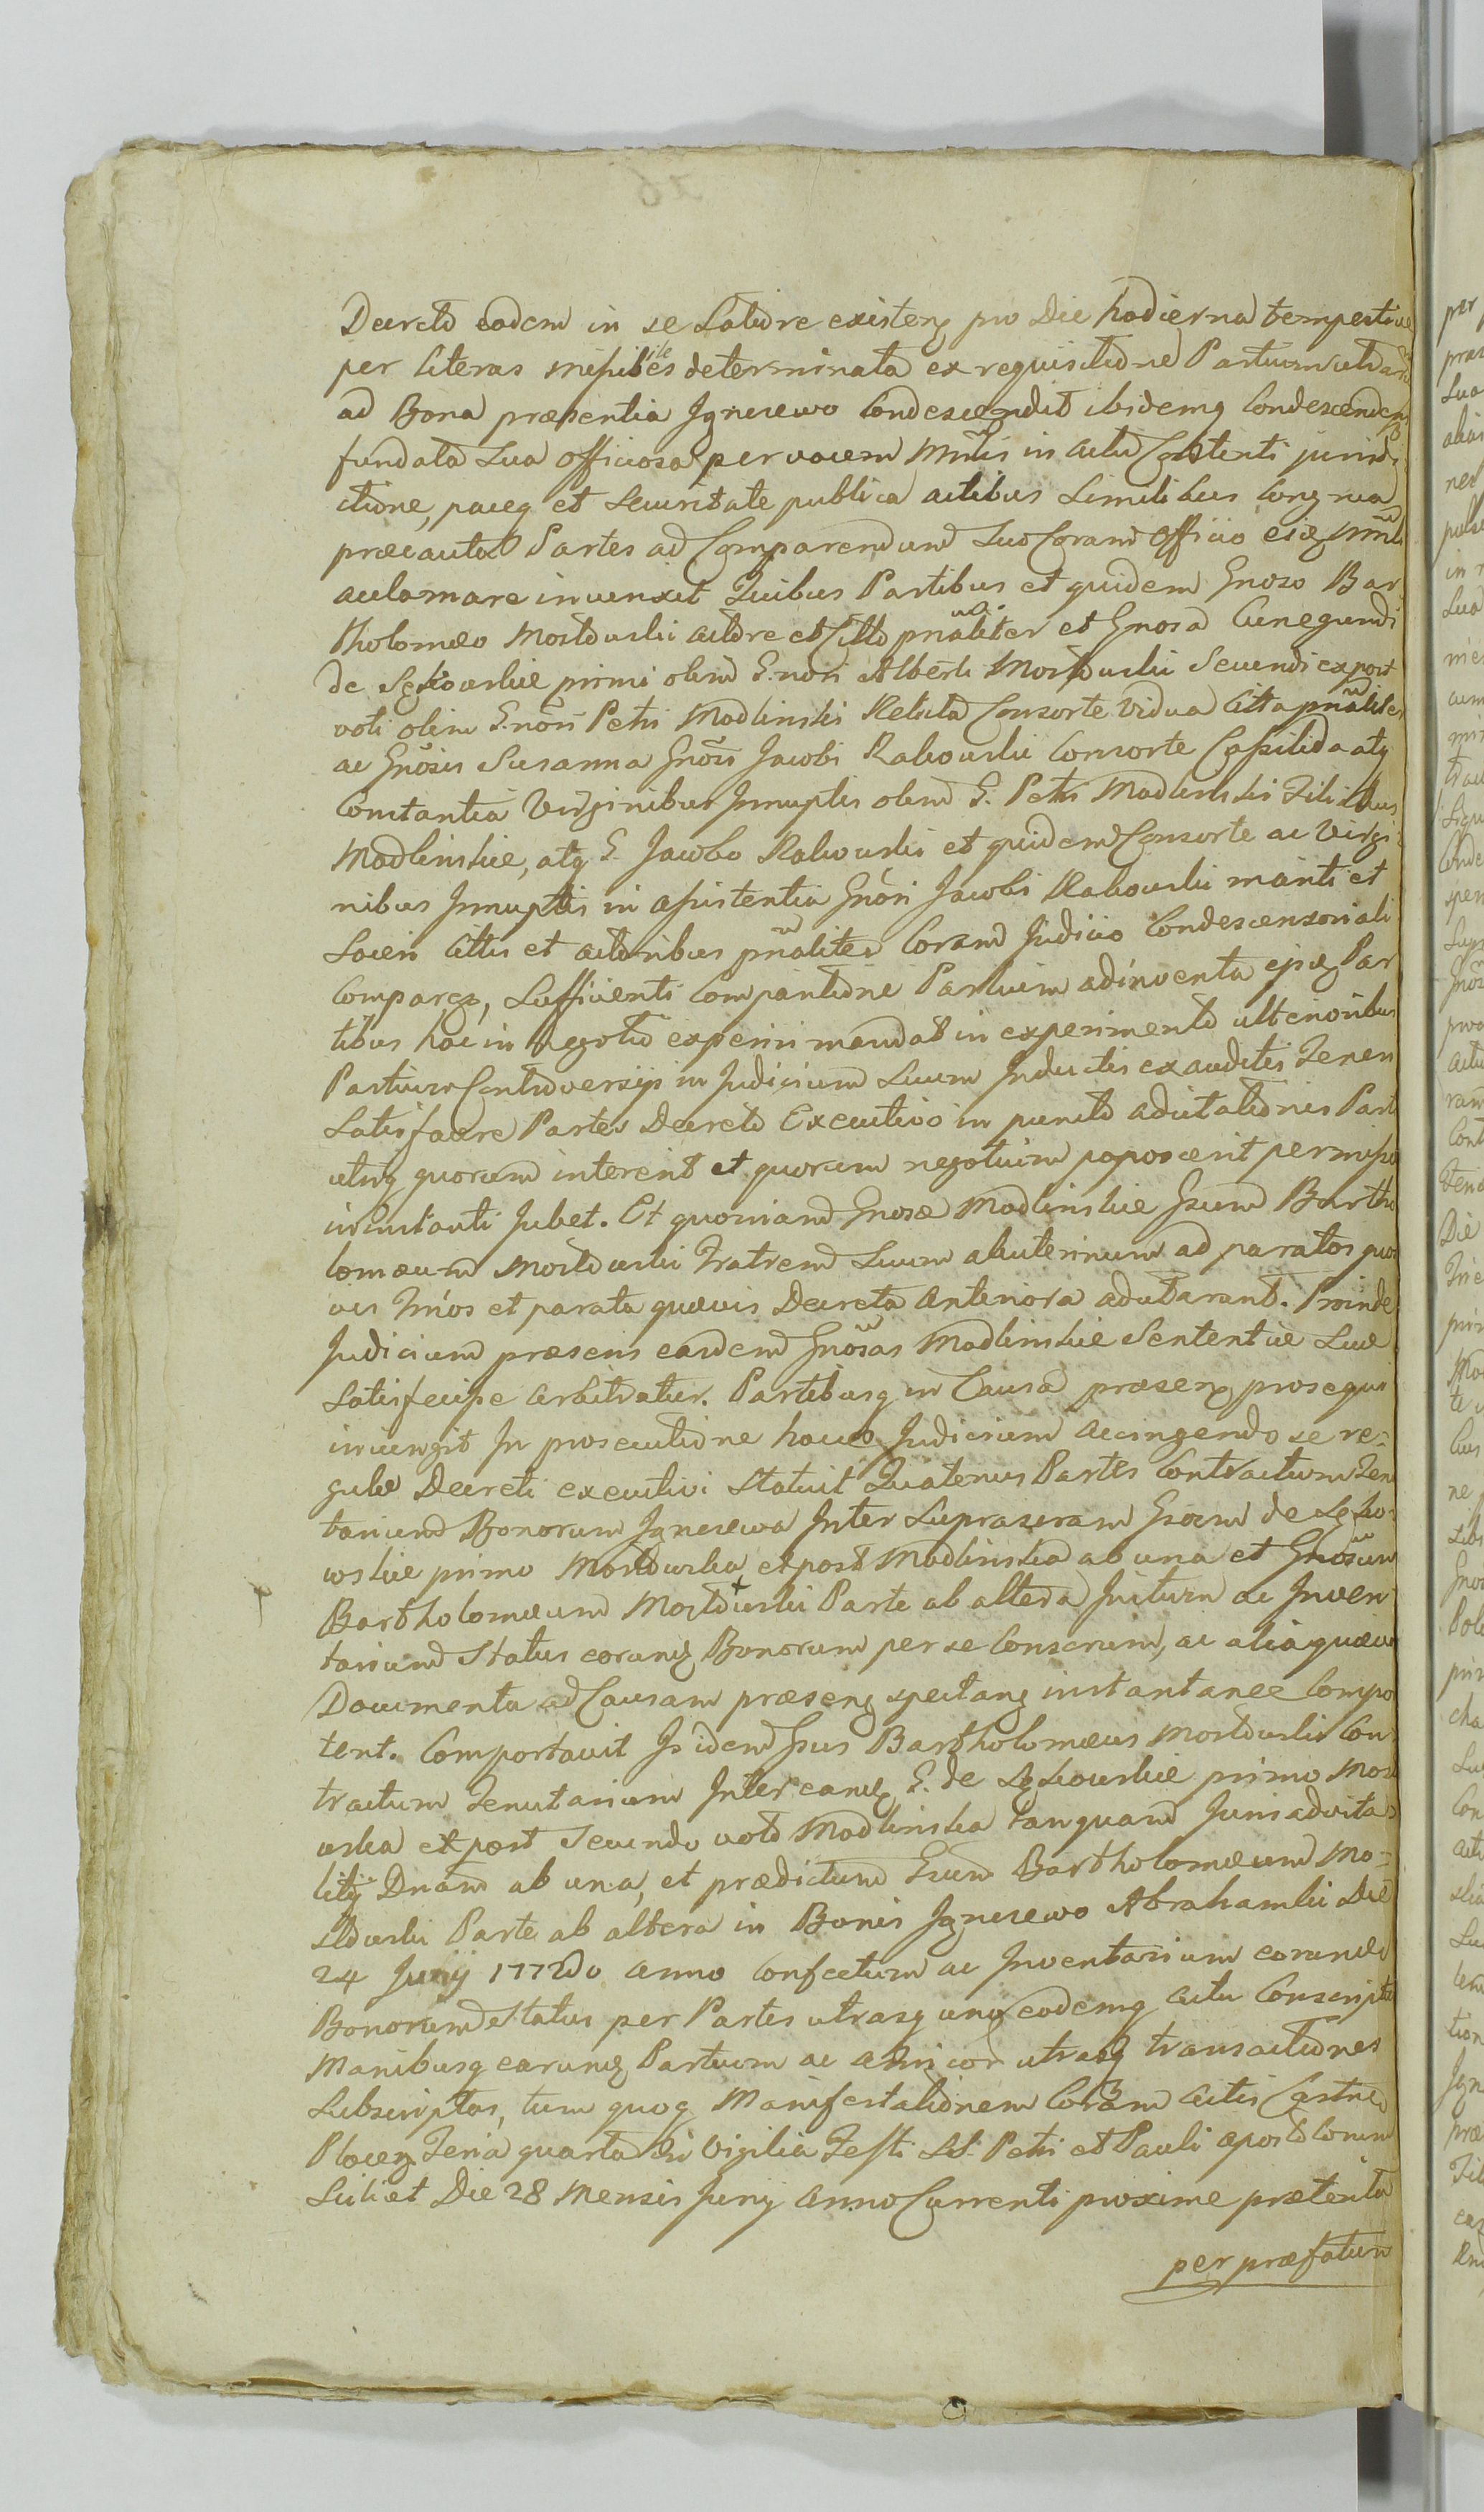 Decreto eadem in se Latiore existen pro Die hodierna tempestive
per literas missibiles determinata ex requisitione Partium
ad Bona præsentia Ignacewo Condescendit ibidemq Condescenden
fundata Sua officiosa per vocem Mnlis in actu Contenti jurisdi
ctione, paceq et Securitate publica actibus Similibus Congrua
præcauta Partes ad Comparendum Suo Coram Officio
acclamare injunxit Quibus Partibus et quidem Gnoso Bar
tholomæo Mostowski actore et Citto pnaliter et Gnosa Cunegundi
de primi olim G. Alberti Mostowski Secundi expost
voti olim Petri Modlinski Relicta Consorte Vidua Citta pnaliter
ac Gnosis Susanna Gnosi Jacobi Rakowski Consorte Cassilda atq
Constantia Virginibus Innuptis olim G. Petri Modlinski Filiabus
Modlinskie, atq G. Jacobo Rakowski et quidem Consorte ac Virgi
nibus Innuptis in assistentia Gnosi Jacobi Rakowski mariti et
Cittis et actoribus pnaliter Coram Judicio Condescensoriali
Comparen, Sufficienti Comparitione Partium adinventa Par
tibus hoc in negotio experiri mandat in experimento ulterioribus
Partium Controversiis in Judicium Suum Inductis exauditis
Satisfacere Partes Decreto Executivo in puncto adcitationis Part
utriq quorum intererit et quorum negotium poposcerit permisso
in instanti jubet. Et quoniam Gnosæ Modlinskie Gsum Bartho
lomæum Mostowski Fratrem Suum abuterinum ad paratos quos
vis et parata quævis Decreta Anteriora adcitarant. Proinde
Judicium præsens easdem Gnosas Modlinskie Sententiæ Suæ
Satisfecisse arbitratur. Partibusq in Causa præsen prosequi
injungit In prosecutione hacce Judicium accingendo se re=
gulæ Decreti executivi Statuit Quatenus Partes Contractum Ten
tarium Bonorum Ignacewa Inter Gsam de
wskie primo Mostowska, expost Modlinska ab una et Gnosum
Bartholomæum Mostowski Parte ab altera Initum ac Inven
tarium Status Bonorum per se Conscrum, ac alia quævis
Documenta ad Causam præsen spectan instantanee Compo
tent. Comportavit Isidem Gsus Bartholomæus Mostowski Con
tractum Tenutarium Inter G. de primo Mos
wska expost Secundo voto Modlinska tanquam Juris advita
litii Dnam ab una, et prædictum Gsum Bartholomæum Mo=
stowski Parte ab altera in Bonis Ignacewo Abrahamki Die
24 Junij 1772do anno confectum ac Inventarium
Bonorum Status per Partes utrasq uno eodemq actu Conscript
Manibusq Partium ac utrasq transactiones
Subscriptas, tum quoq Manifestationem Coram actis Castren
Plocen Feria quarta in Vigilia Festi SS. Petri et Pauli Apostolorum
Scilicet Die 28 Mensis Junij Anno Currenti proxime præterita
per præfatum